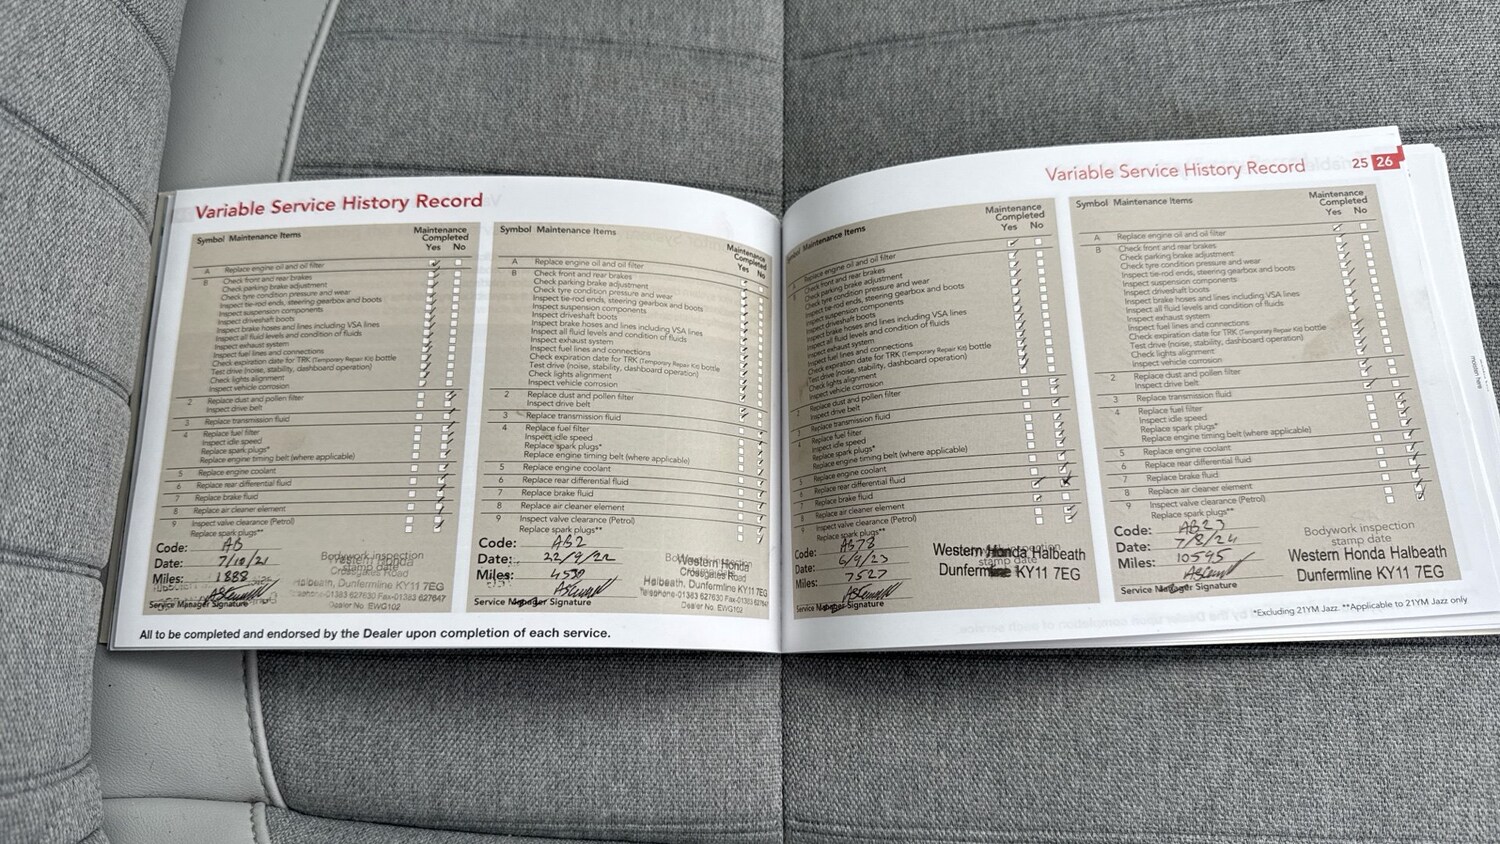 Variable Service History Record
Symbol Maintenance Items
Maintenance
Completed
Yes No
A Replace engine oil and oil filter
B Check front and rear brakes
Check parking brake adjustment
Check tyre condition pressure and wear
Inspect tie-rod ends, steering gearbox and boots
Inspect suspension components
Inspect driveshaft boots
Inspect brake hoses and lines including VSA lines
Inspect all fluid levels and condition of fluids
Inspect exhaust system
Inspect fuel lines and connections
Check expiration date for TRK (Temporary Repair Kit) bottle
Test drive (noise, stability, dashboard operation)
Check lights alignment
Inspect vehicle corrosion
2 Replace dust and pollen filter
Inspect drive belt
3 Replace transmission fluid
4 Replace fuel filter
Inspect idle speed
Replace spark plugs*
Replace engine timing belt (where applicable)
5 Replace engine coolant
6 Replace rear differential fluid
7 Replace brake fluid
8 Replace air cleaner element
9 Inspect valve clearance (Petrol)
Replace spark plugs**
Code: AB
Date: 7/10/21
Miles: 1888
Service Manager Signature
Bodywork inspection
stamp date
Crossgates Road
Halbeath, Dunfermline KY11 7EG
Telephone-01383 627630 Fax-01383 627647
Dealer No. EWG102
Symbol Maintenance Items
Maintenance
Completed
Yes No
A Replace engine oil and oil filter
B Check front and rear brakes
Check parking brake adjustment
Check tyre condition pressure and wear
Inspect tie-rod ends, steering gearbox and boots
Inspect suspension components
Inspect driveshaft boots
Inspect brake hoses and lines including VSA lines
Inspect all fluid levels and condition of fluids
Inspect exhaust system
Inspect fuel lines and connections
Check expiration date for TRK (Temporary Repair Kit) bottle
Test drive (noise, stability, dashboard operation)
Check lights alignment
Inspect vehicle corrosion
2 Replace dust and pollen filter
Inspect drive belt
3 Replace transmission fluid
4 Replace fuel filter
Inspect idle speed
Replace spark plugs*
Replace engine timing belt (where applicable)
5 Replace engine coolant
6 Replace rear differential fluid
7 Replace brake fluid
8 Replace air cleaner element
9 Inspect valve clearance (Petrol)
Replace spark plugs**
Code: AB2
Date: 22/9/22
Miles: 4530
Service Manager Signature
Western Honda
Crossgates Road
Halbeath, Dunfermline KY11 7EG
Telephone-01383 627630 Fax-01383 627647
Dealer No. EWG102
All to be completed and endorsed by the Dealer upon completion of each service.
Variable Service History Record 25 26
Maintenance Items
Maintenance
Completed
Yes No
Replace engine oil and oil filter
Check front and rear brakes
Check parking brake adjustment
Check tyre condition pressure and wear
Inspect tie-rod ends, steering gearbox and boots
Inspect suspension components
Inspect driveshaft boots
Inspect brake hoses and lines including VSA lines
Inspect all fluid levels and condition of fluids
Inspect exhaust system
Inspect fuel lines and connections
Check expiration date for TRK (Temporary Repair Kit) bottle
Test drive (noise, stability, dashboard operation)
Check lights alignment
Inspect vehicle corrosion
Replace dust and pollen filter
Inspect drive belt
Replace transmission fluid
Replace fuel filter
Inspect idle speed
Replace spark plugs*
Replace engine timing belt (where applicable)
Replace engine coolant
Replace rear differential fluid
Replace brake fluid
Replace air cleaner element
Inspect valve clearance (Petrol)
Replace spark plugs**
Code: AB78
Date: 6/9/23
Miles: 7527
Service Manager Signature
Western Honda Halbeath
stamp date
Dunfermline KY11 7EG
Symbol Maintenance Items
Maintenance
Completed
Yes No
A Replace engine oil and oil filter
B Check front and rear brakes
Check parking brake adjustment
Check tyre condition pressure and wear
Inspect tie-rod ends, steering gearbox and boots
Inspect suspension components
Inspect driveshaft boots
Inspect brake hoses and lines including VSA lines
Inspect all fluid levels and condition of fluids
Inspect exhaust system
Inspect fuel lines and connections
Check expiration date for TRK (Temporary Repair Kit) bottle
Test drive (noise, stability, dashboard operation)
Check lights alignment
Inspect vehicle corrosion
2 Replace dust and pollen filter
Inspect drive belt
3 Replace transmission fluid
4 Replace fuel filter
Inspect idle speed
Replace spark plugs*
Replace engine timing belt (where applicable)
5 Replace engine coolant
6 Replace rear differential fluid
7 Replace brake fluid
8 Replace air cleaner element
9 Inspect valve clearance (Petrol)
Replace spark plugs**
Code: AB23
Date: 7/8/24
Miles: 10595
Service Manager Signature
Bodywork inspection
stamp date
Western Honda Halbeath
Dunfermline KY11 7EG
*Excluding 21YM Jazz. **Applicable to 21YM Jazz only